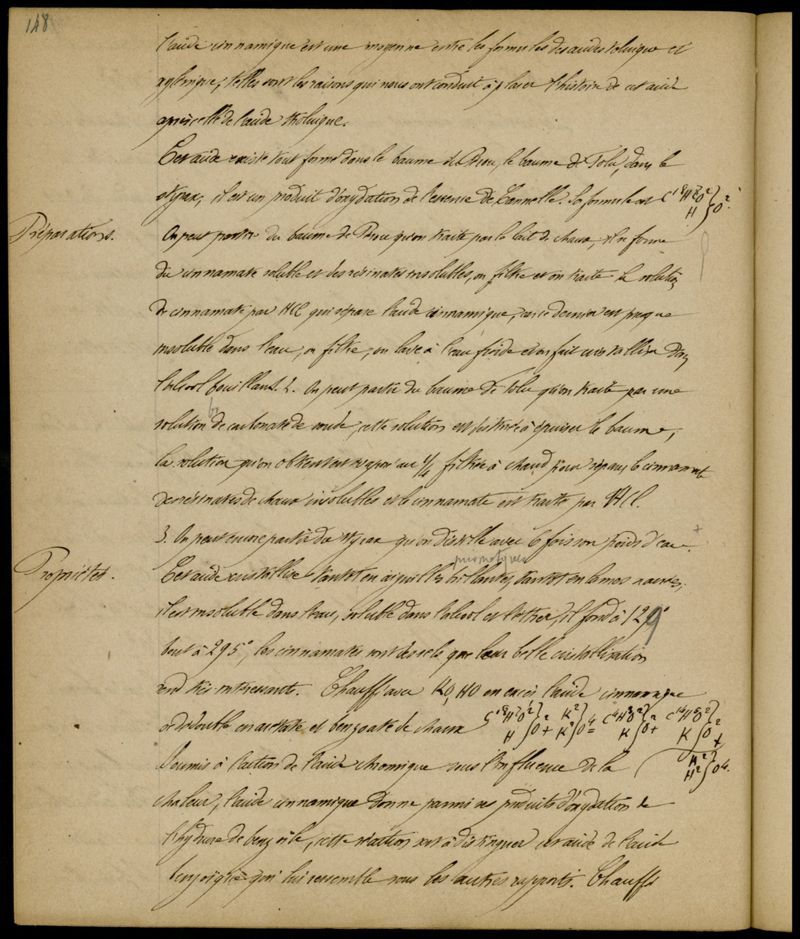 148
l'acide cinnamique est une moyenne entre les formules des acides toluique et
; telles sont les raisons qui nous ont conduit à placer l'histoire de cet acide
après celle de l'acide tholuique.
Cet acide existe tout formé dans le baume du Pérou, le baume de Tolu, dans le
styrax; il est un produit d'oxydation de l'essence de Cannelle. Sa formule est C¹⁸H⁷O² } O².
H
Préparations.
On peut partir du baume de Pérou qu'on traite par le lait de chaux, il se forme
du cinnamate soluble et des résinates insolubles, on filtre et on traite la solution
de cinnamate par HCl qui sépare l'acide cinnamique, car ce dernier est presque
insoluble dans l'eau, on filtre, on lave à l'eau froide et on fait cristalliser dans
l'alcool bouillant. 2. On peut partir du baume de Tolu qu'on traite par une
solution de carbonate de soude, cette solution est destinée à épuiser le baume,
la solution qu'on obtient est évaporée au 1/4 filtrée à chaud pour séparer le cinnamate
de résinates de chaux insolubles et le cinnamate est traité par HCl.
3. On peut encore partir du styrax qu'on distille avec 10 fois son poids d'eau.
Propriétés.
prismatiques
Cet acide cristallise tantôt en aiguilles brillantes, tantôt en lames nacrées,
il est insoluble dans l'eau, soluble dans l'alcool et l'éther, il fond à 129°
bout à 295°, les cinnamates sont des sels que leur belle cristallisation
rend très intéressants. Chauffé avec KO, HO en excès l'acide cinnamique
se dédouble en acétate et benzoate de chaux C¹⁸H⁷O² } O² + K² } O⁴ = C⁴H³O² } O² + C¹⁴H⁵O² } O²
H K² K K
+ H² } O⁴.
H²
Soumis à l'action de l'acide chromique sous l'influence de la
chaleur, l'acide cinnamique donne parmi ses produits d'oxydation de
l'hydrure de benzoïle, cette réaction sert à distinguer cet acide de l'acide
benzoïque qui lui ressemble sous les autres rapports. Chauffé